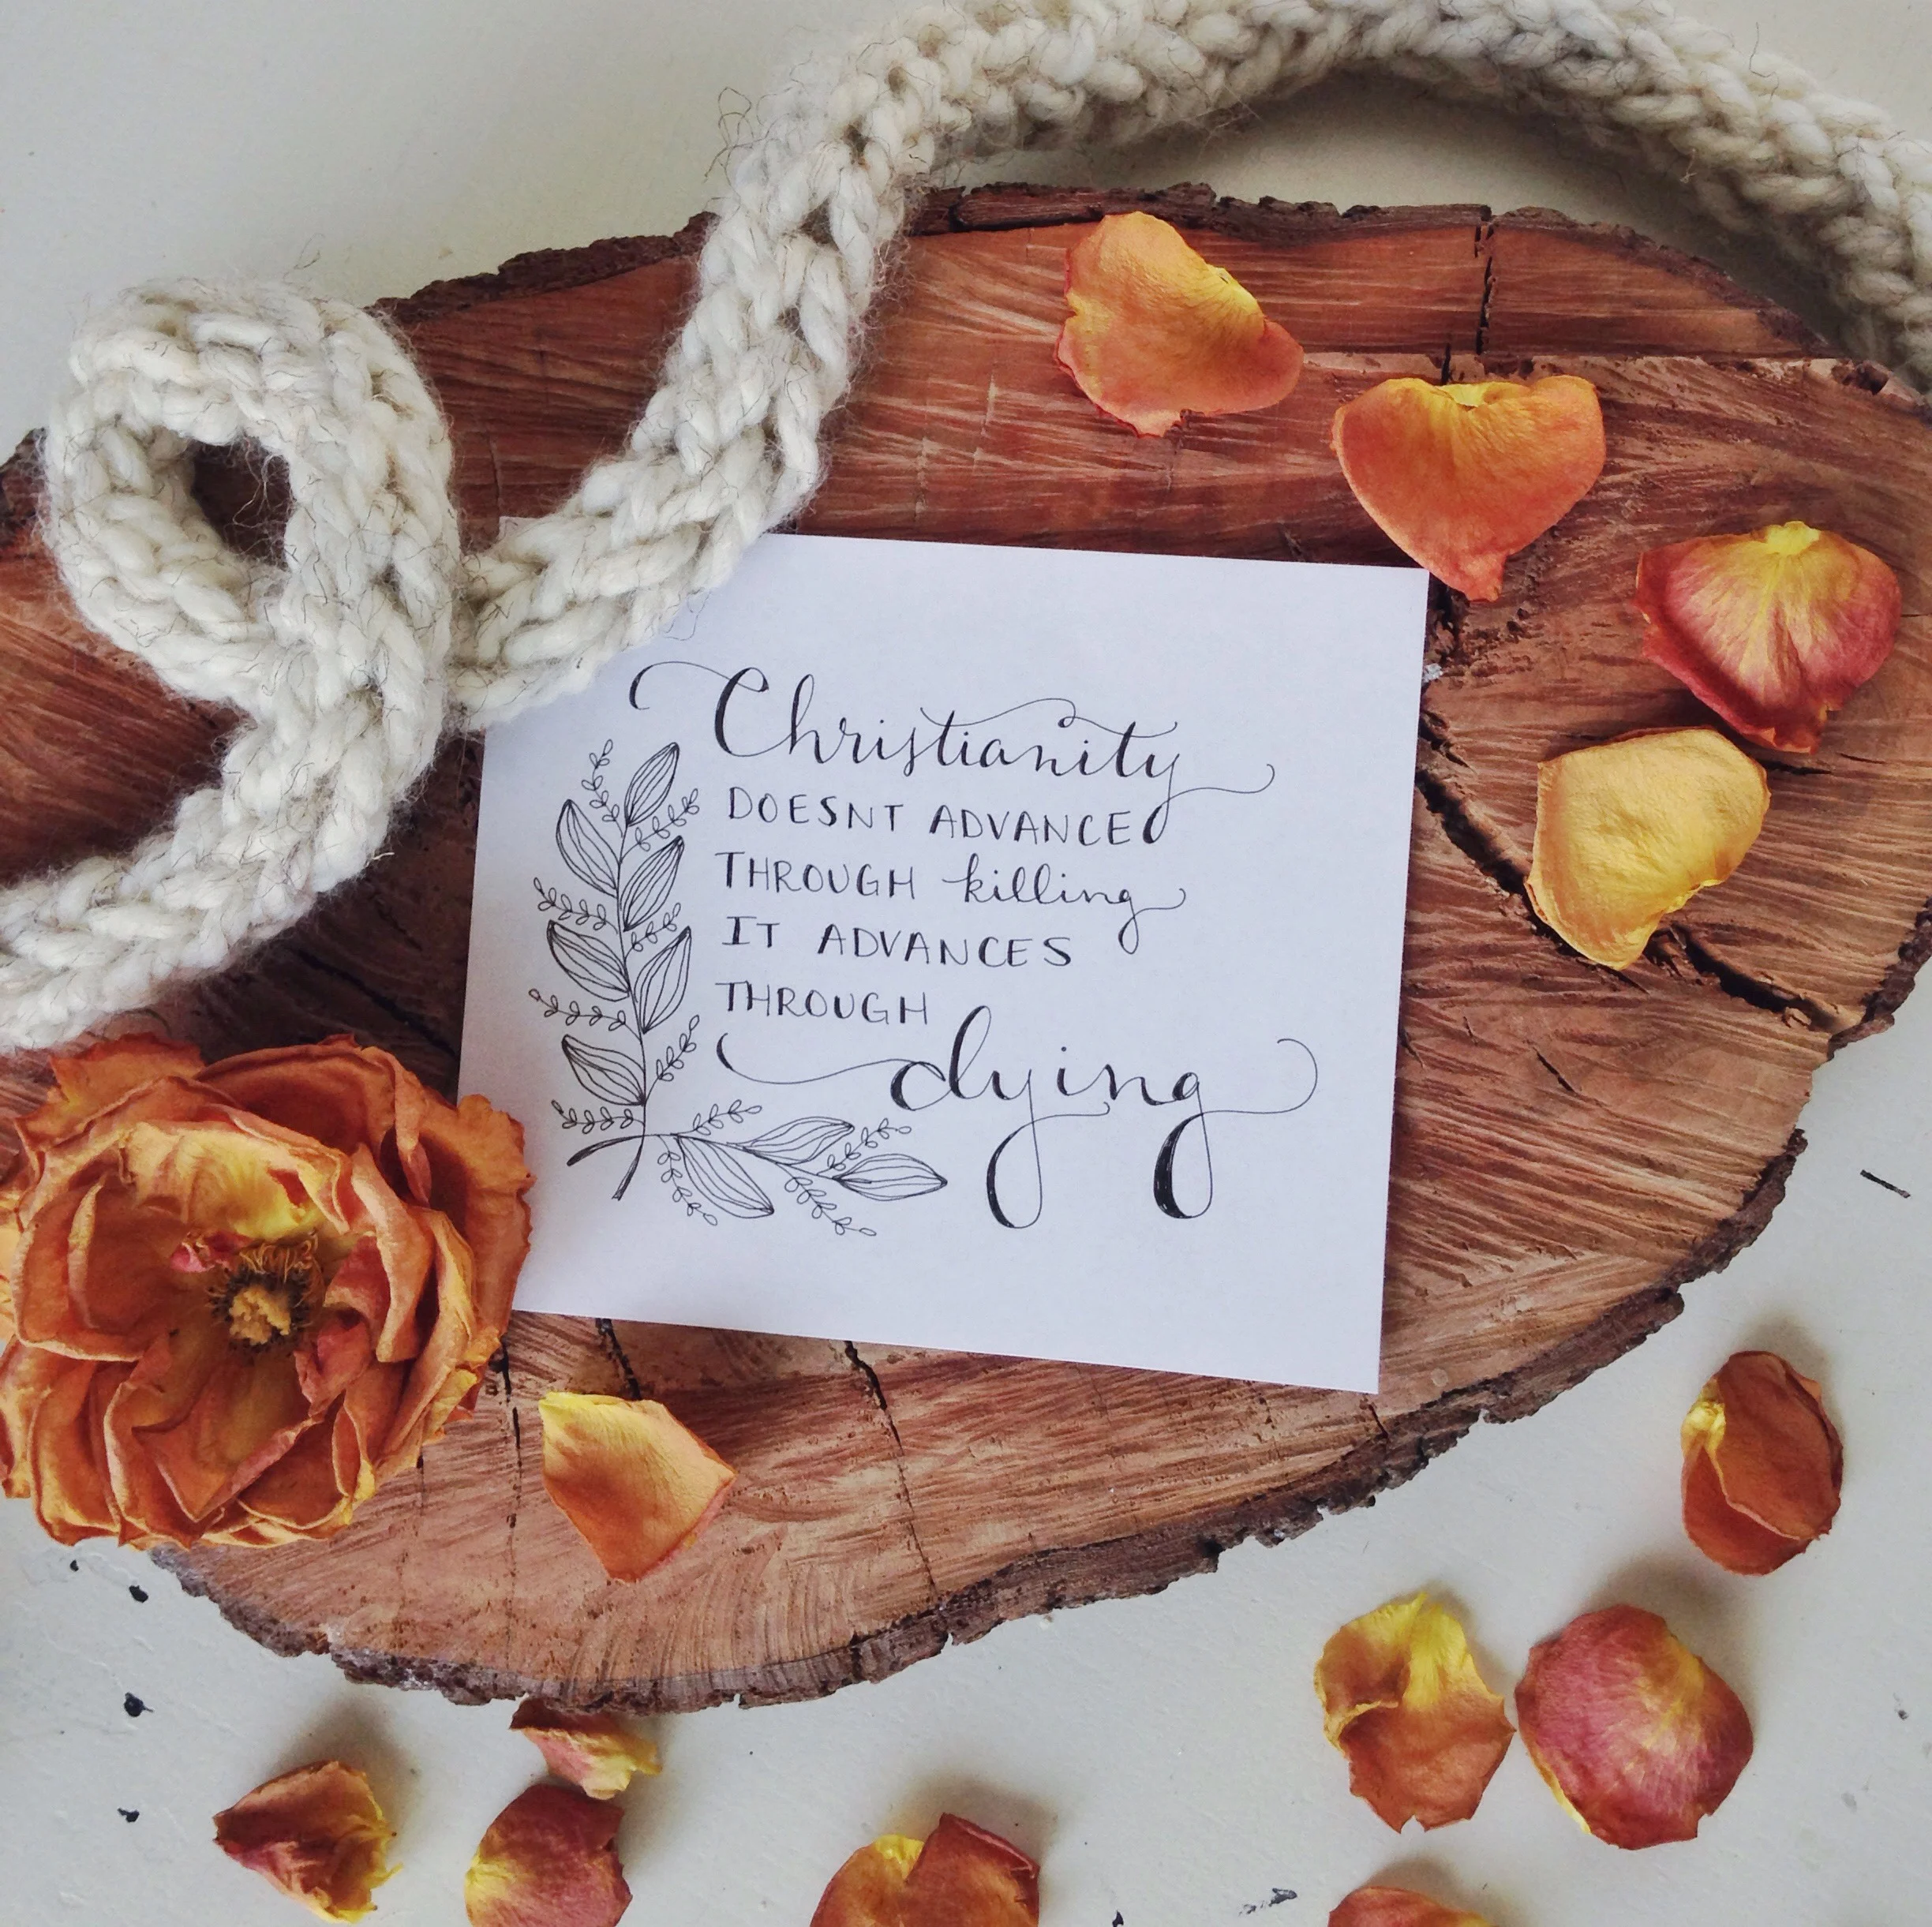 Christianity
DOESNT ADVANCE
THROUGH killing
IT ADVANCES
THROUGH
dying